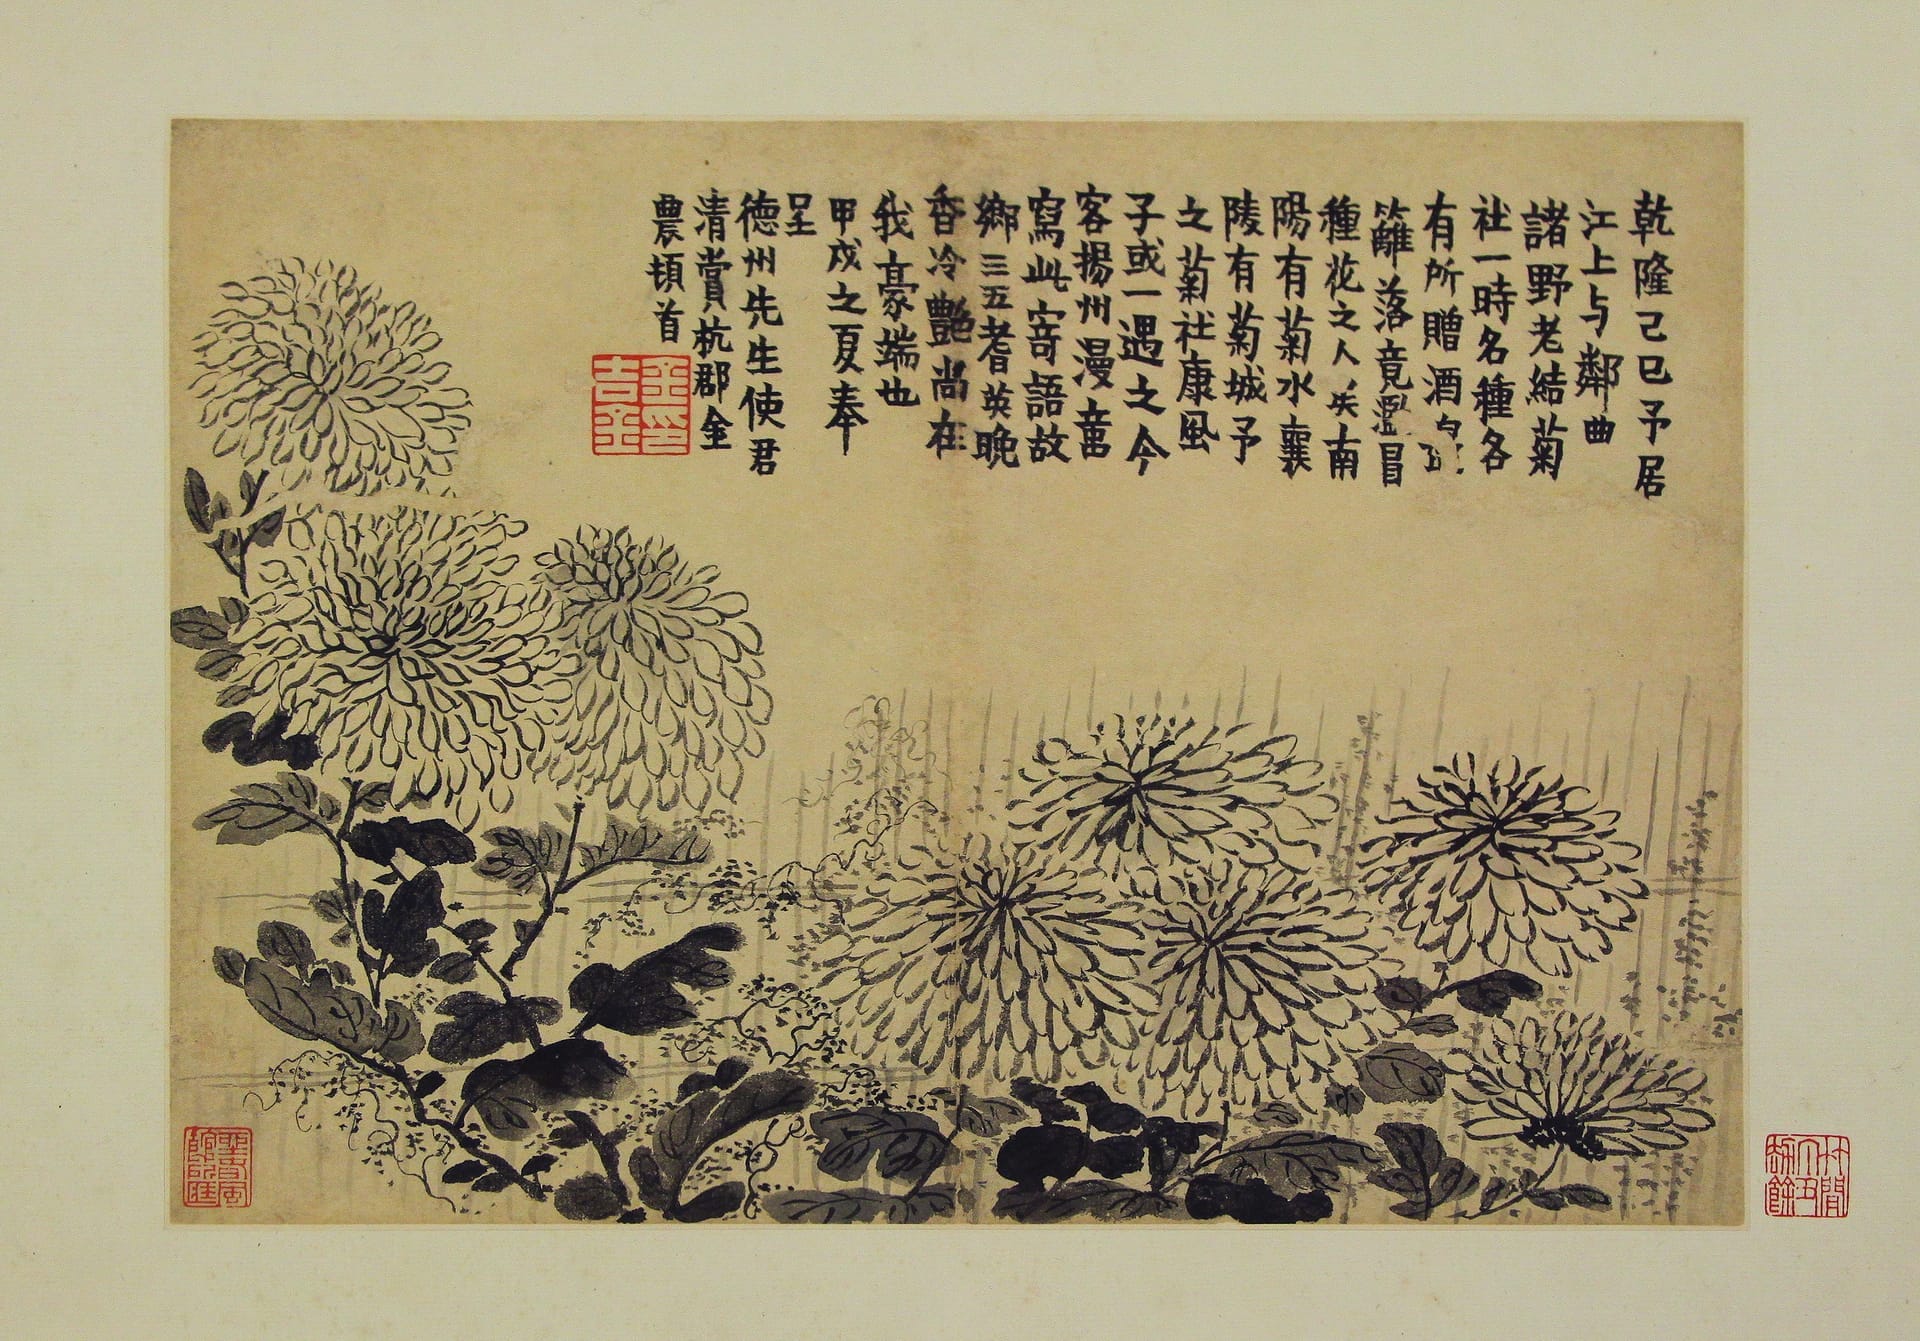 乾隆己巳予居
江上与鄰曲
諸野老結菊
社一時名種各
有所贈酒
籬落竟濫冒
種花之人矣南
陽有菊水襄
陵有菊城予
之菊社康風
子或一遇之今
客揚州漫畫
寫此寄語故
鄉三五耆英晚
香冷艷尚在
我毫端也
甲戌之夏奉
呈
德州先生使君
清賞杭郡金
農頓首
金吉金印